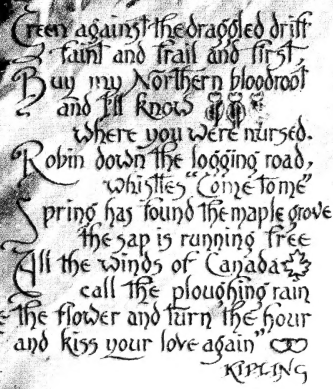 Green against the draggled drift
faint and frail and first,
Buy my Northern bloodroot
and I'll know
where you were nursed.
Robin down the logging road,
whistles "Come to me"
Spring has found the maple grove
the sap is running free
All the winds of Canada
call the ploughing rain
the flower and turn the hour
and kiss your love again"
KIPLING